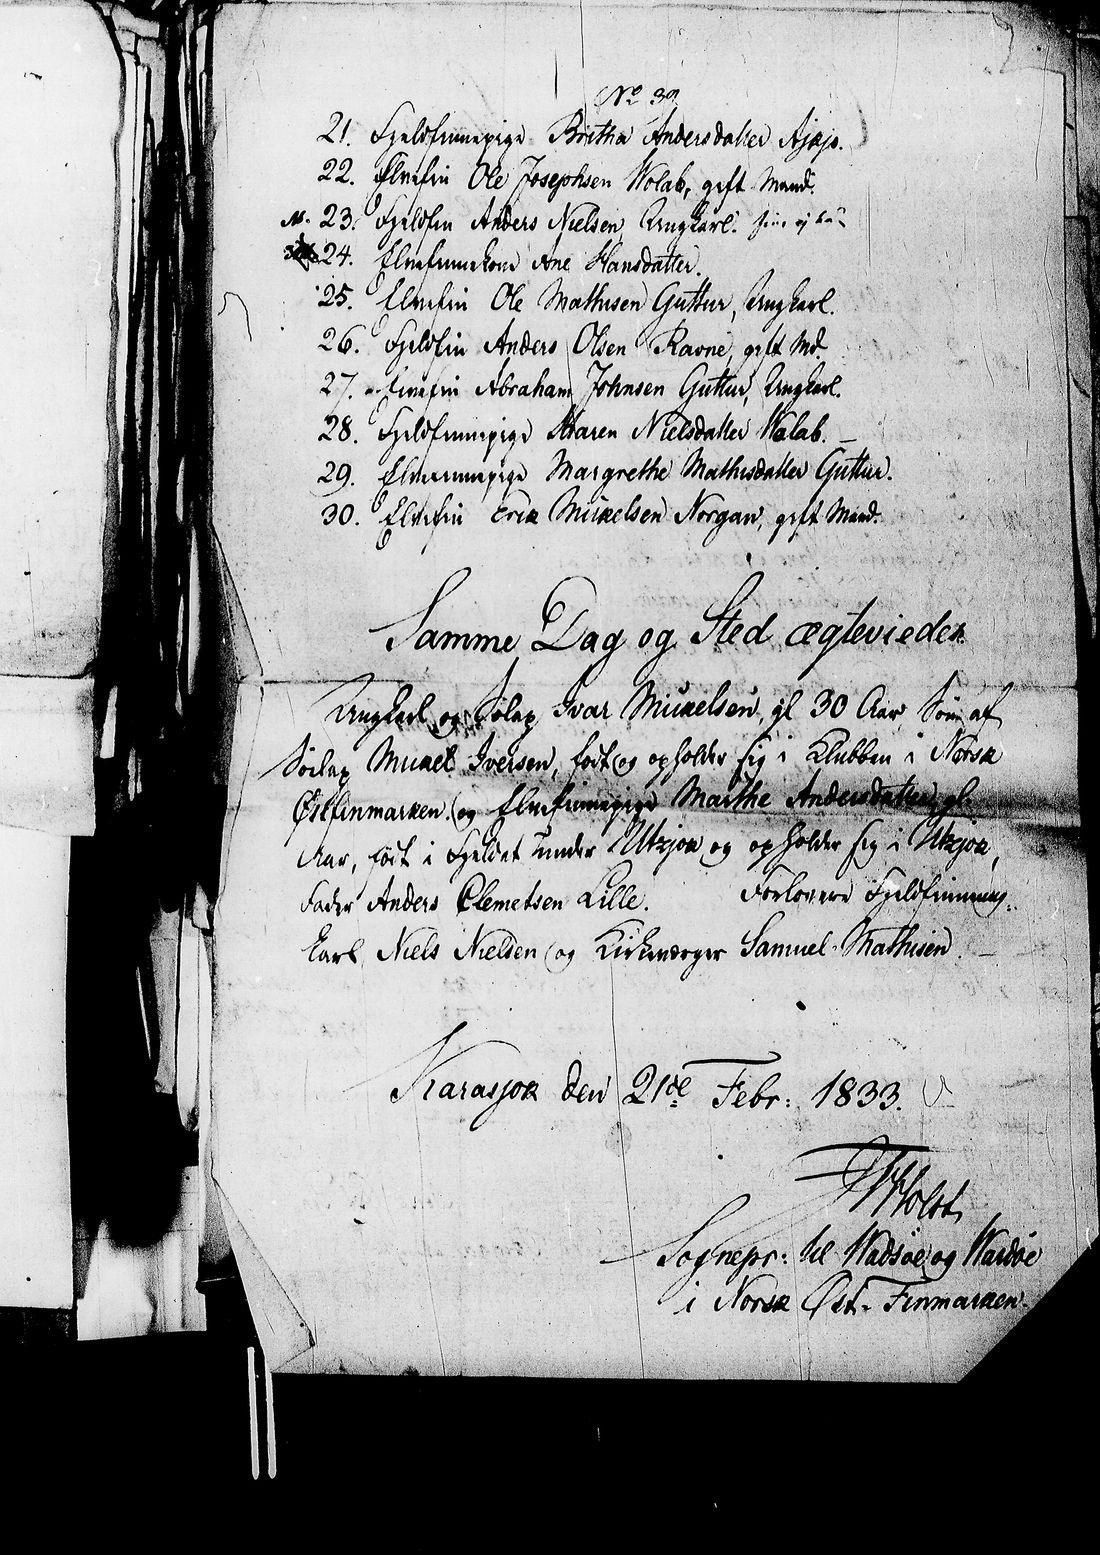 No 39
21. Fjeldfinnepige Britha Andersdatter Ajajs.
22. Elvefin Ole Josephsen Wolab, gift Mand.
23. Fjeldfin Anders Nielsen, Ungkarl.
24. Elvefinnekone Ane Hansdatter.
25. Elvefin Ole Mathisen Guttur, Ungkarl.
26. Fjeldfin Anders Olsen Ravne, gift Md.
27. Elvefin Abraham Johnsen Guttur, Ungkarl.
28. Fjeldfinnepige Maren Nielsdatter Walab. –
29. Elvefinnepige Margrethe Mathisdatter Guttur.
30. Elvefin Erik Mikelsen Norgau, gift Mand.
Samme Dag og Sted ægteviedes
Ungkarl og Sølap Ivar Mikkelsen, gl 30 Aar, Søn af
Søelap Mikkel Iversen, født og opholder sig i Klubben i Norsk
Østfinmarken. og Elvefinnepige Marthe Andersdatter, gl.
Aar, født i Fjeldet under Utzjok og opholder sig i Utzjok,
Fader Anders Clemetsen Lille. Forlovere Fjeldfinneung-
karl Niels Nielsen og Kirkeværger Samuel Mathisen. –
Karasjok den 21de Febr: 1833.
Holst
Sognepr: til Wadsøe og Wardøe
i Norsk Øst-Finmarken.